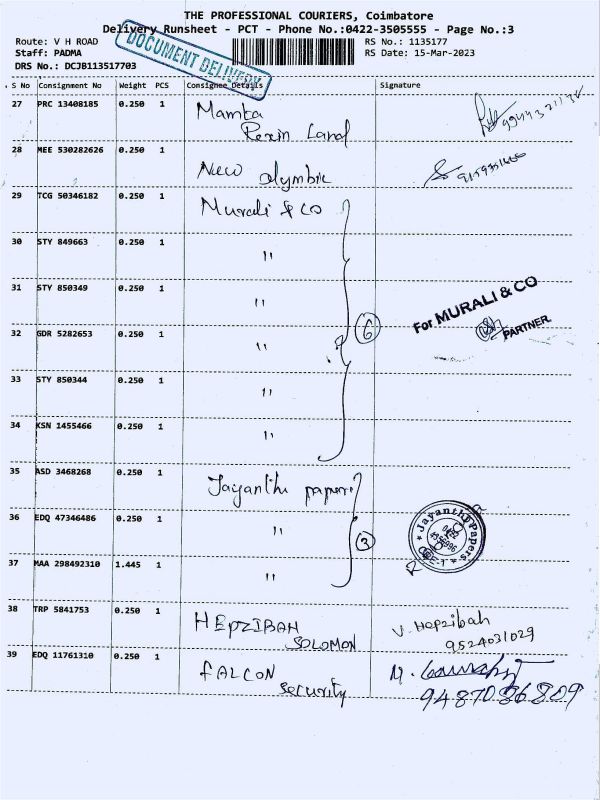 THE PROFESSIONAL COURIERS, Coimbatore
Delivery Runsheet - PCT - Phone No.:0422-3505555 - Page No.:3
Route: V H ROAD
Staff: PADMA
DRS No.: DCJB113517703
RS No.: 1135177
RS Date: 15-Mar-2023
DOCUMENT DELIVERY
S No Consignment No Weight PCS Consignee Details Signature
27 PRC 13408185 0.250 1 Mamta
Rexin Land
28 MEE 530282626 0.250 1 New olymbic
29 TCG 50346182 0.250 1 Murali & Co
30 STY 849663 0.250 1 "
31 STY 850349 0.250 1 "
For MURALI & CO
PARTNER
6
32 GDR 5282653 0.250 1 "
33 STY 850344 0.250 1 "
34 KSN 1455466 0.250 1 "
35 ASD 3468268 0.250 1 Jayanthi papers
36 EDQ 47346486 0.250 1 "
3
Jayanthi Papers
37 MAA 298492310 1.445 1 "
38 TRP 5841753 0.250 1 HEPZIBAH
SOLOMON
V. Hepzibah
9524031029
39 EDQ 11761310 0.250 1 FALCON
Security
9487036809